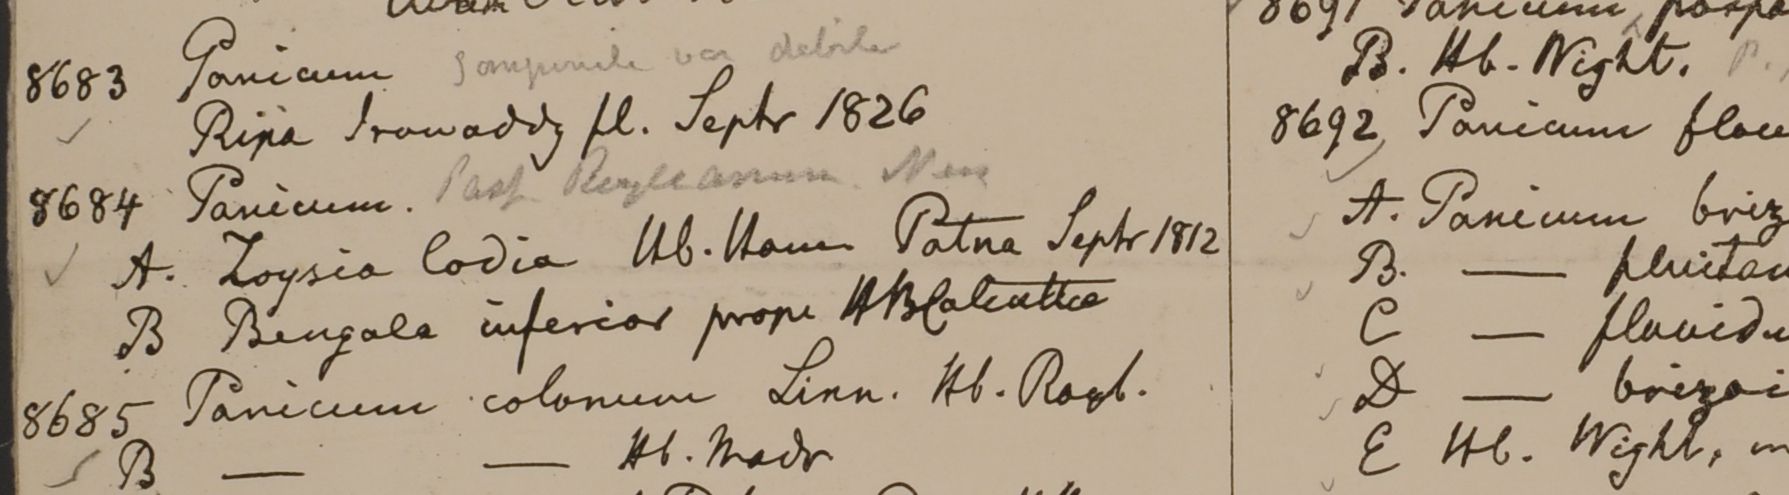 8683 Panicum var debile
Ripa Irawaddy fl. Septr 1826
8684 Panicum. Pasp. Royleanum Nees
A. Zoysia Codia Hb. Ham Patna Septr 1812
B Bengala inferior prope HBCalcutta
8685 Panicum colonum Linn. Hb. Roxb.
B — — Hb. Madr
8691 Panicum
B. Hb. Wight. P.
8692 Panicum flav
A. Panicum briz
B. — fluitan
C — flavidu
D — brizoi
E Hb. Wight,